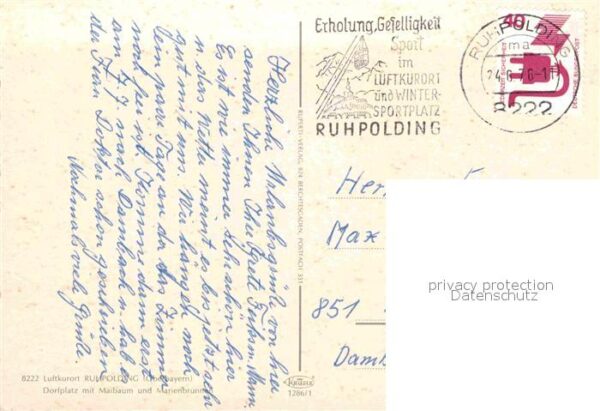 Erholung, Geselligkeit
Sport
im
LUFTKURORT
und WINTER-
SPORTPLATZ
RUHPOLDING
RUHPOLDING
24.6.76-1
8222
40
DEUTSCHE BUNDESPOST
Herzliche Urlaubsgrüße von hier
senden Ihnen Ihre
Es ist wie immer sehr schön hier
u. das Wetter meint es bis jetzt sehr
gut mit uns. Wir hängen noch
ein paar Tage an da das Zimmer
noch frei ist. Kommen dann erst
am nach Dambach u. hab
der Frau Doktor schon geschrieben
Nochmals viele Grüße.
RUPERT-VERLAG, 824 BERCHTESGADEN, POSTFACH 331
Max
851
Damb
privacy protection
Datenschutz
8222 Luftkurort RUHPOLDING (Oberbayern)
Dorfplatz mit Maibaum und Marienbrunnen
1286/1